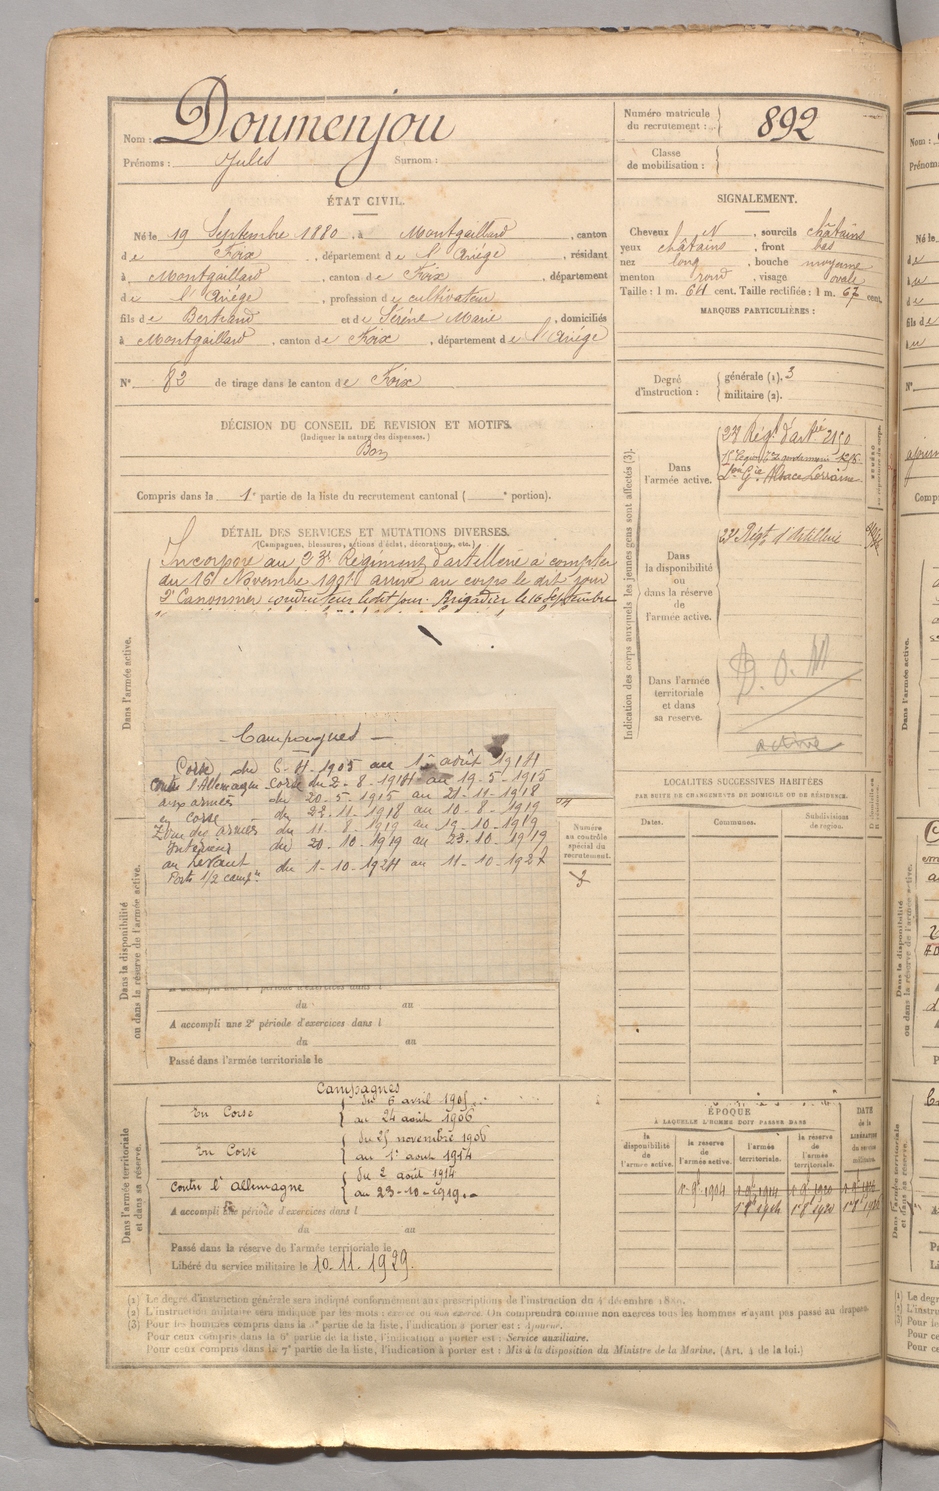 Nom : Doumenjou
Prénoms : Jules Surnom :
Numéro matricule
du recrutement : 892
Classe
de mobilisation :
ÉTAT CIVIL.
Né le 19 Septembre 1880, à Montgaillard, canton
de Foix, département de l'Ariège, résidant
à Montgaillard, canton de Foix, département
de l'Ariège, profession de cultivateur
fils de Bertrand et de Sérène Marie, domiciliés
à Montgaillard, canton de Foix, département de l'Ariège
N° 82 de tirage dans le canton de Foix
SIGNALEMENT.
Cheveux N, sourcils châtains
yeux châtains, front bas
nez long, bouche moyenne
menton rond, visage ovale
Taille : 1 m. 64 cent. Taille rectifiée : 1 m. 67 cent.
MARQUES PARTICULIÈRES :
Degré
d'instruction :
générale (1). 3
militaire (2).
DÉCISION DU CONSEIL DE REVISION ET MOTIFS.
(Indiquer la nature des dispenses.)
Bon
Compris dans la 1e partie de la liste du recrutement cantonal ( e portion).
DÉTAIL DES SERVICES ET MUTATIONS DIVERSES.
(Campagnes, blessures, actions d'éclat, décorations, etc.)
Incorporé au 23e Régiment d'artillerie à compter
du 16 Novembre 1901 arrivé au corps le dit jour
2e Canonnier conducteur le dit jour. Brigadier le 16 Septembre
Dans l'armée active.
Indication des corps auxquels les jeunes gens sont affectés (3).
Dans
l'armée active.
23e Régt d'artie 2150
Gie Alsace Lorraine
Dans
la disponibilité
ou
dans la réserve
de
l'armée active.
23e Régt d'Artillerie
Dans l'armée
territoriale
et dans
sa réserve.
active
Campagnes
Corse du 6-4-1905 au 1er août 1914
Contre l'Allemagne Corse du 2-8-1914 au 19-5-1915
aux armées du 20-5-1915 au 21-11-1918
en Corse du 22-11-1918 au 10-8-1919
Zone des armées du 11-8-1919 au 19-10-1919
Intérieur du 20-10-1919 au 23-10-1919
au Levant du 1-10-1924 au 11-10-1927
Porte 1/2 campne
Numéro
au contrôle
spécial du
recrutement.
LOCALITÉS SUCCESSIVES HABITÉES
PAR SUITE DE CHANGEMENTS DE DOMICILE OU DE RÉSIDENCE.
Dates. Communes. Subdivisions
de région.
Dans la disponibilité
ou dans la réserve de l'armée active.
du au
A accompli une 2e période d'exercices dans l
du au
Passé dans l'armée territoriale le
Dans l'armée territoriale
et dans sa réserve.
Campagnes
En Corse
du 6 avril 1905
au 24 août 1906
En Corse
du 25 novembre 1906
au 1er août 1914
Contre l'Allemagne
du 2 août 1914
au 23-10-1919
A accompli une période d'exercices dans l
du au
Passé dans la réserve de l'armée territoriale le
Libéré du service militaire le 10.11.1929.
ÉPOQUE
À LAQUELLE L'HOMME DOIT PASSER DANS
la
disponibilité
de
l'armée active.
la réserve
de
l'armée active.
l'armée
territoriale.
la réserve
de
l'armée
territoriale.
DATE
de la
LIBÉRATION
du service
militaire.
1er 9bre 1904
(1) Le degré d'instruction générale sera indiqué conformément aux prescriptions de l'instruction du 4 décembre
(2) L'instruction militaire sera indiquée par les mots : exercé ou non exercé. On comprendra comme non exercés tous les hommes n'ayant pas passé au drapeau.
(3) Pour les hommes compris dans la partie de la liste, l'indication à porter est : Ajourné.
Pour ceux compris dans la 6e partie de la liste, l'indication à porter est : Service auxiliaire.
Pour ceux compris dans la 7e partie de la liste, l'indication à porter est : Mis à la disposition du Ministre de la Marine. (Art. 4 de la loi.)